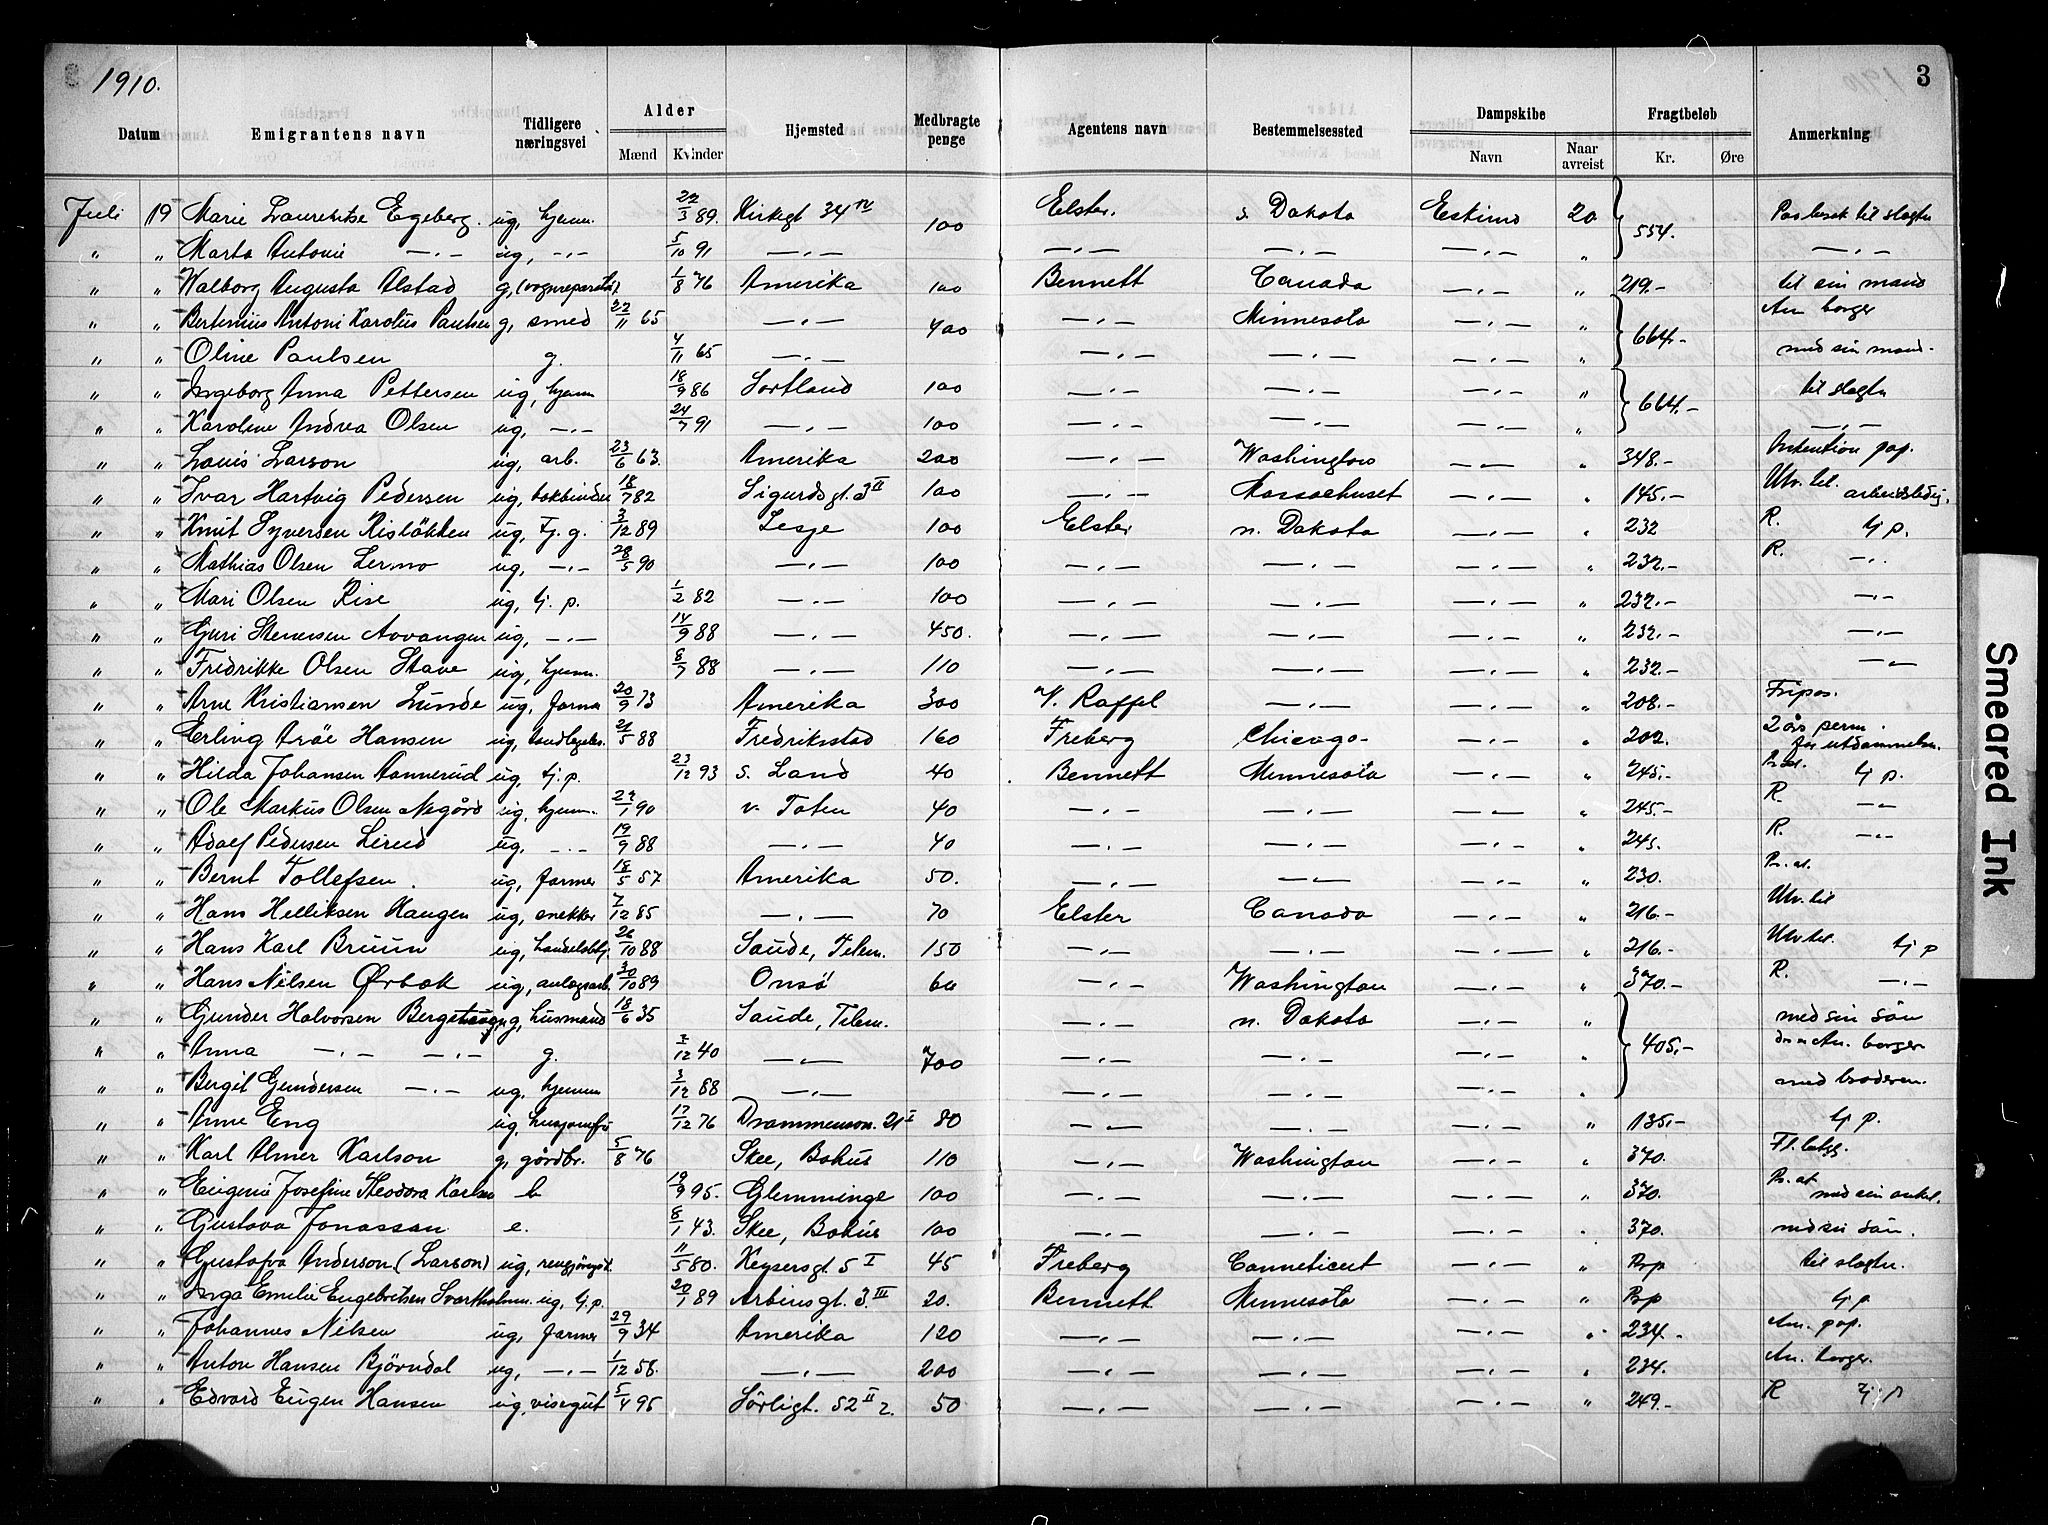 1910.
3
Datum Emigrantens navn Tidligere næringsvei Alder Mænd Kvinder Hjemsted Medbragte penge Agentens navn Bestemmelsessted Dampskibe Navn Naar avreist Fragtbeløb Kr. Øre Anmerkning
Juli 19 Marie Laurentse Egeberg. ug, hjemm. 22/3 89. Kirkegt 34 IV 100 Elster. s. Dakota Eskimo 20 554. til slegtn
" " Marta Antonie —"— ug, —"— 5/10 91 —"— —"— —"— —"— " —"—
" " Walborg Augusta Alstad g, 1/8 76 Amerika 100 Bennett Canada —"— " 219.- til sin mand
" " Bertinius Antoni Karolius Paulsen g, smed 22/11 65 —"— 400 —"— Minnesota —"— " 664.- Am borger
" " Oline Paulsen g. 4/11 65 —"— —"— —"— —"— " med sin mand.
" " Ingeborg Anna Pettersen ug, hjemm 18/9 86 Sortland 100 —"— —"— —"— " 664.- til slegtn
" " Karoline Andrea Olsen ug, —"— 24/7 91 —"— 100 —"— —"— —"— " —"—
" " Louis Larson ug, arb. 23/6 63. Amerika 200 —"— Washington —"— " 348.- Intention pap.
" " Ivar Hartvig Pedersen ug, bokbinder 18/7 82 Sigurdsgt. 3 II 100 —"— Massachuset —"— " 145.- Utv. til. arbeidsledig.
" " Knut Syversen Risløkken ug, tj. g. 3/12 89 Lesje 100 Elster n. Dakota —"— " 232 R. tj p.
" " Mathias Olsen Lermo ug, —"— 28/5 90 —"— 100 —"— —"— —"— " 232.- R. —"—
" " Mari Olsen Rise ug, tj. p. 1/2 82 —"— 100 —"— —"— —"— " 232.- —"—
" " Guri Stenersen Avvangen ug, —"— 14/9 88 —"— 450. —"— —"— —"— " 232.- —"—
" " Fredrikke Olsen Stave ug, hjemm. 8/7 88 —"— 110 —"— —"— —"— " 232.- —"—
" " Arne Kristiansen Lunde ug, farmer 20/9 73 Amerika 300 V. Raffel —"— —"— " 208.- Fripas.
" " Erling Arøe Hansen ug, tandlegeles. 21/5 88 Fredriksstad 160 Freberg Chicago —"— " 202. 2 års perm. for utdannelse.
" " Hilda Johansen Aannerud ug, tj. p. 23/12 93 s. Land 40 Bennett Minnesota —"— " 245.- tj p.
" " Ole Markus Olsen Nøgård ug, hjemm. 27/1 90 v. Toten 40 —"— —"— —"— " 245.- R. —"—
" " Adolf Pedersen Lirud ug, —"— 19/9 88 —"— 40 —"— —"— —"— " 245. R. —"—
" " Bernt Tollefsen. ug, farmer 18/5 57 Amerika 50. —"— —"— —"— " 230. Pr. at.
" " Hans Helliksen Haugen ug, snekker 7/12 85 —"— 70 Elster Canada —"— " 216.- Utv. til
" " Hans Karl Bruun ug, handelsbtj. 26/10 88 Saude, Telem. 150 —"— —"— —"— " 216.- Utv til. tj p
" " Hans Nilsen Ørbæk ug, anlægsarb. 30/10 89 Onsø 60 —"— Washington —"— " 370.- R. —"—
" " Gunder Halvorsen Bergsteig g, husmand 18/6 35 Saude, Telem. —"— n. Dakota —"— " med sin sön
" " Anna —"— —"— g. 7/12 40 —"— 700 —"— —"— —"— " 405.- der er Am. borger
" " Bergit Gundersen —"— ug, hjemm 3/12 88 —"— —"— —"— —"— " med broderen.
" " Anne Eng ug, husjomfr 17/12 76 Drammensv. 21 I 80 —"— —"— —"— " 135.- tj p.
" " Karl Almer Karlson g, gårdbr. 5/8 76 Skee, Bohus 110 —"— Washington —"— " 370. Fl. betyg.
" " Eugenie Josefine Theodora Karlsen b 19/9 95. Glemminge 100 —"— —"— —"— " 370. Pr. at med sin onkel.
" " Gustava Jonassan e. 8/1 43. Skee, Bohus 100 —"— —"— —"— " 370. med sin sön.
" " Gustafva Anderson (Larson) ug, rengjöringst. 11/5 80. Keysersgt 5 I 45 Freberg Conneticut —"— " Pbp til slegtn.
" " Inga Emilie Engebretsen Svartholmm. ug, tj. p. 20/1 89 Arbinsgt. 3. III 20. Bennett Minnesota —"— " Pbp tj p
" " Johannes Nilsen ug, farmer 29/9 34 Amerika 120 —"— —"— —"— " 234.- Am. pap.
" " Anton Hansen Bjørndal ug, —"— 1/12 58. —"— 200 —"— —"— —"— " 234. Am. borger.
" " Edvard Eugen Hansen ug, visergut 5/4 95 Sørligt. 52 II 2. 50 —"— —"— —"— " 249.- R tj p
Smeared Ink